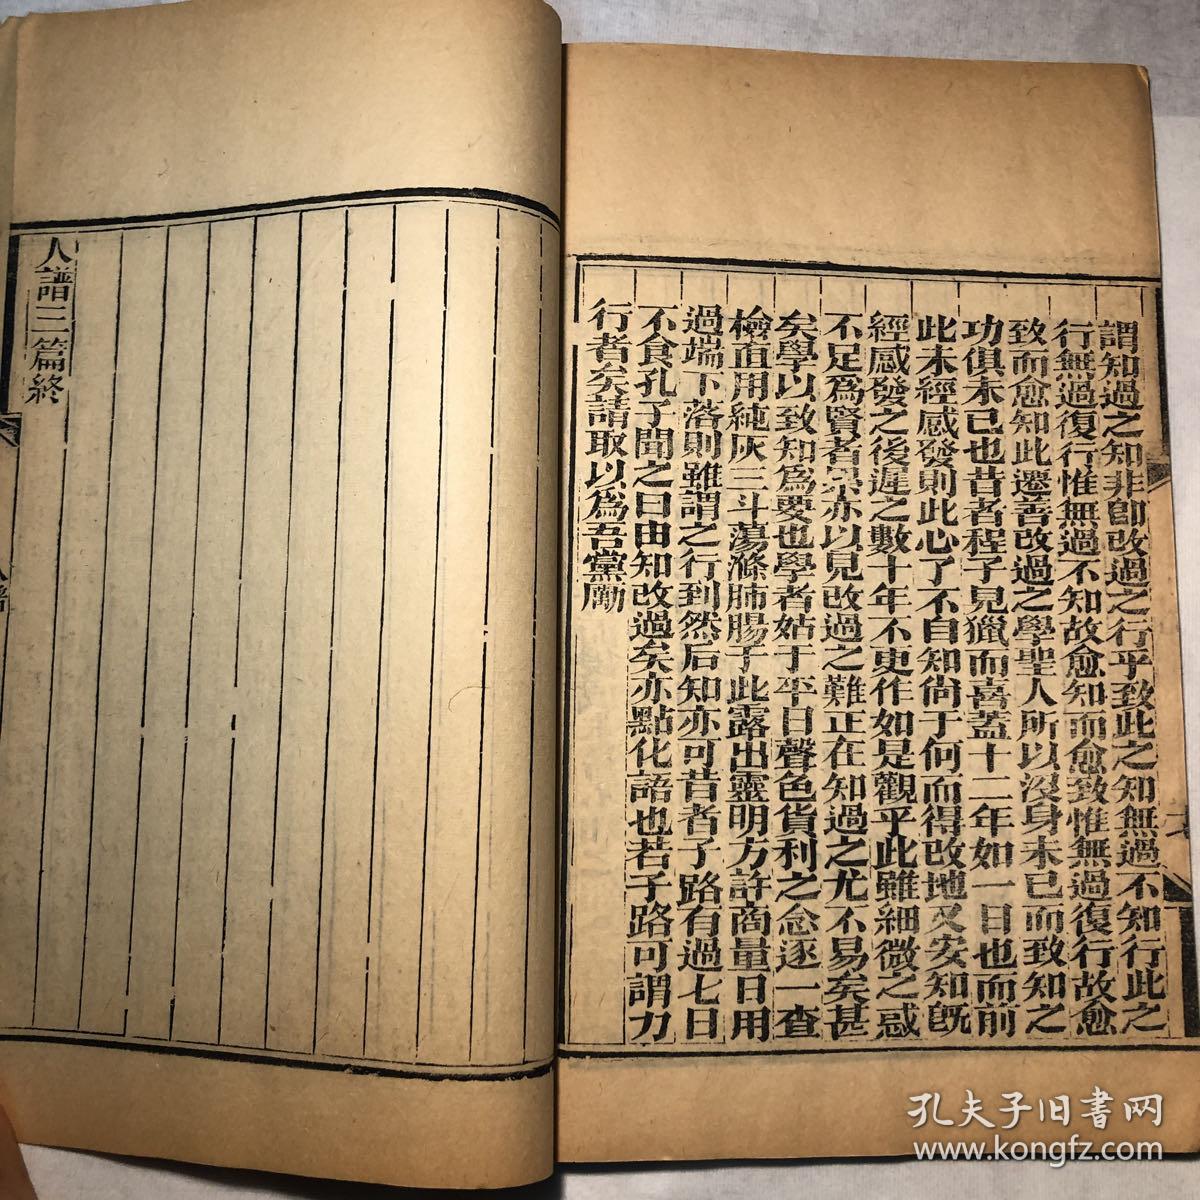 謂知過之知非卽改過之行乎致此之知無過不知行此之
行無過復行惟無過不知故愈知而愈致惟無過復行故愈
致而愈知此遷善改過之學聖人所以沒身未已而致知之
功俱未已也昔者程子見獵而喜蓋十二年如一日也而前
此未經感發則此心了不自知尚于何而得改地又安知旣
經感發之後遲之數十年不更作如是觀乎此雖細微之惑
不足爲賢者累亦以見改過之難正在知過之尤不易矣甚
矣學以致知爲要也學者姑于平日聲色貨利之念逐一查
檢直用純灰三斗蕩滌肺腸于此露出靈明方許商量日用
過端下落則雖謂之行到然后知亦可昔者子路有過七日
不食孔子聞之曰由知改過矣亦點化語也若子路可謂力
行者矣請取以爲吾黨勵
人譜三篇終
孔夫子旧书网
www.kongfz.com